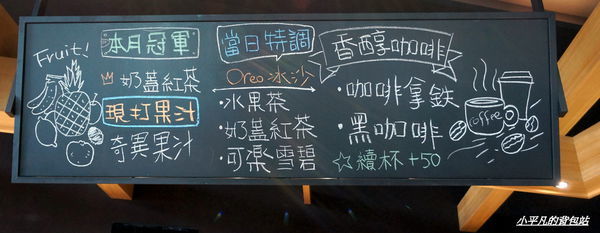 Fruit!
本月冠軍
奶蓋紅茶
現打果汁
奇異果汁
當日特調
Oreo冰沙
・水果茶
・奶蓋紅茶
・可樂雪碧
香醇咖啡
・咖啡拿鐵
・黑咖啡
☆續杯+50
coffee
小平凡的背包站